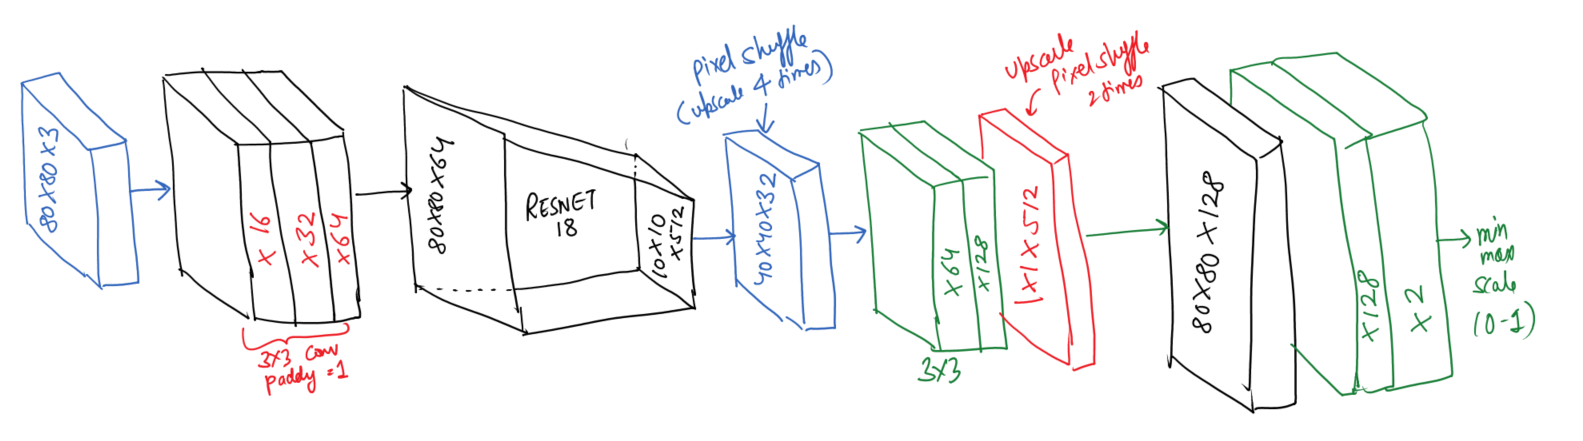 80X80X3
X 16
X32
X64
3X3 Conv
paddy =1
80X80X64
RESNET
18
10X10
X512
pixel shuffle
(upscale 4 times)
40X40X32
X64
X128
3X3
upscale
pixel shuffle
2 times
1X1X512
80X80X128
X128
X2
min
max
scale
(0-1)